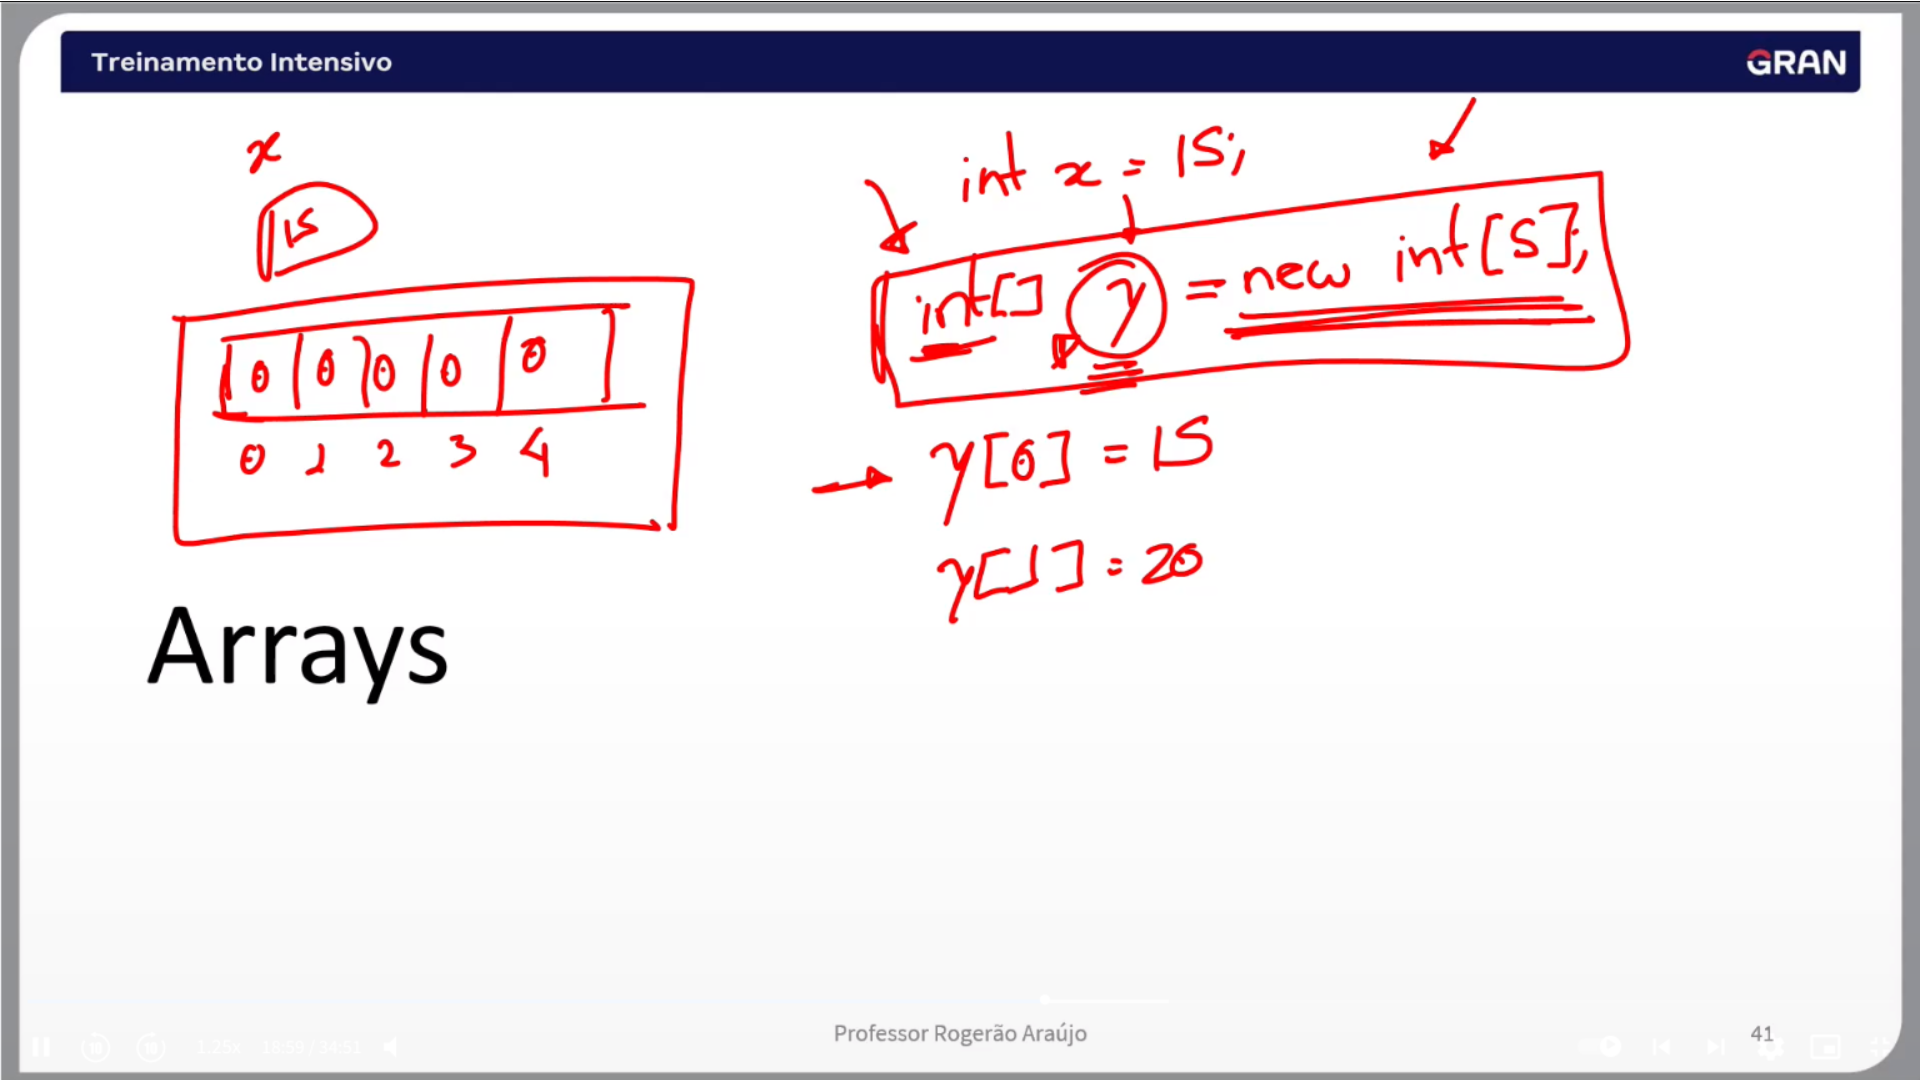 Treinamento Intensivo
GRAN
x
15
0 0 0 0 0
0 1 2 3 4
int x = 15;
int[] y = new int[5];
y[0] = 15
y[1] = 20
Arrays
Professor Rogerão Araújo
41
10
10
1.25x
18:59 / 34:51